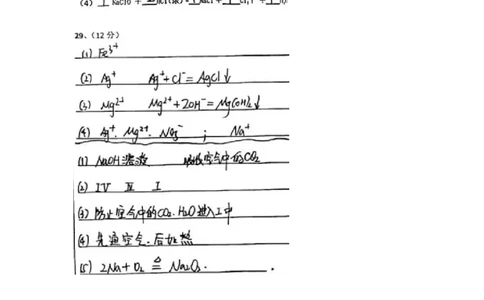 (4) 1 NaClO +
29、(12 分)
(1) Fe³⁺
(2) Ag⁺ Ag⁺+Cl⁻=AgCl↓
(3) Mg²⁺ Mg²⁺+2OH⁻=Mg(OH)₂↓
(4) Ag⁺、Mg²⁺、NO₃⁻ ; Na⁺
(1) NaOH溶液 吸收空气中的CO₂
(2) IV III I
(3) 防止空气中的CO₂、H₂O进入I中
(4) 先通空气、后加热
(5) 2Na+O₂ ≜ Na₂O₂.